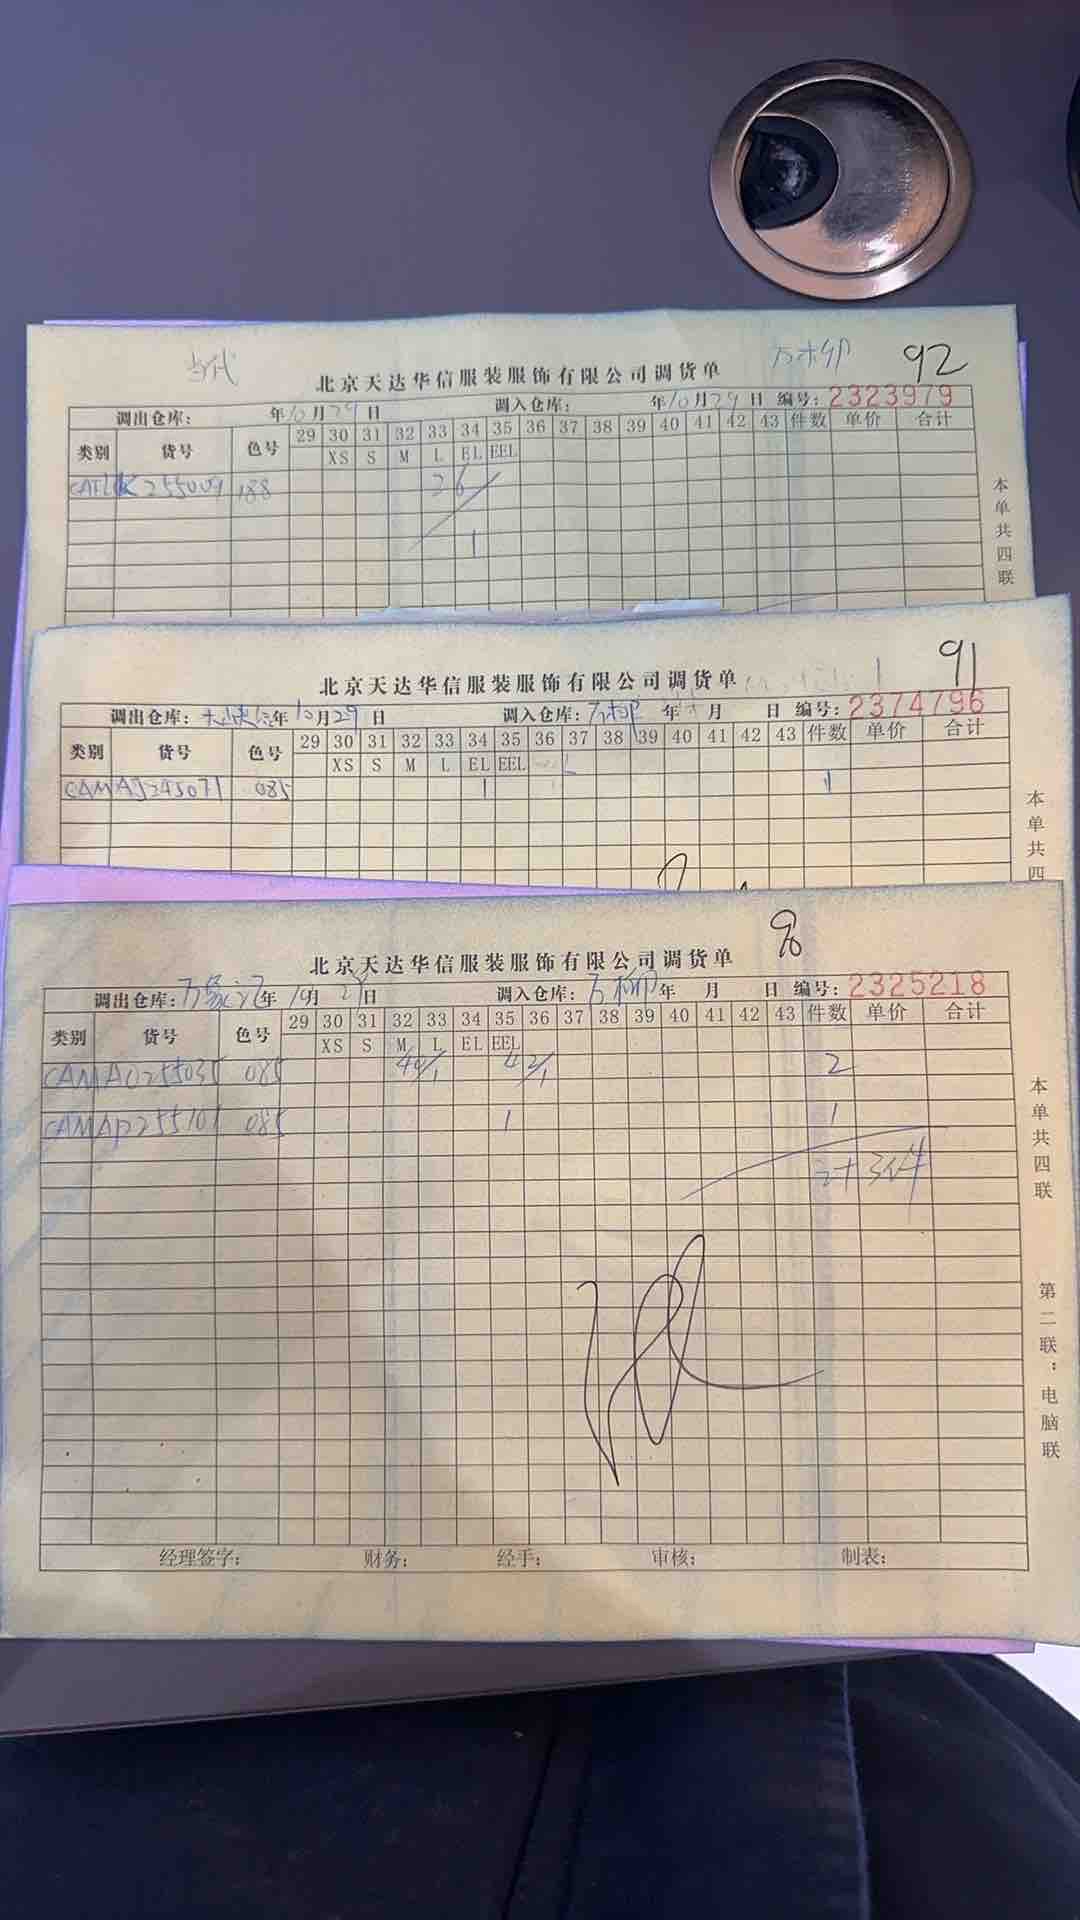 当代
万柳
92
北京天达华信服装服饰有限公司调货单
调出仓库: 年10月29日 调入仓库: 年10月29日 编号: 2323979
类别 货号 色号 29 30 31 32 33 34 35 36 37 38 39 40 41 42 43 件数 单价 合计
XS S M L EL EEL
255009 188 26
1
本单共四联
91
北京天达华信服装服饰有限公司调货单
调出仓库: 年10月29日 调入仓库: 万柳 年 月 日 编号: 2374796
类别 货号 色号 29 30 31 32 33 34 35 36 37 38 39 40 41 42 43 件数 单价 合计
XS S M L EL EEL
CAMAJ245071 085 1 1
本单共四
90
北京天达华信服装服饰有限公司调货单
调出仓库: 万象汇 年10月29日 调入仓库: 万柳 年 月 日 编号: 2325218
类别 货号 色号 29 30 31 32 33 34 35 36 37 38 39 40 41 42 43 件数 单价 合计
XS S M L EL EEL
CAMAO255035 085 40/1 42/1 2
CAMAP255101 085 1 1
计3件
本单共四联
第二联:电脑联
经理签字: 财务: 经手: 审核: 制表: